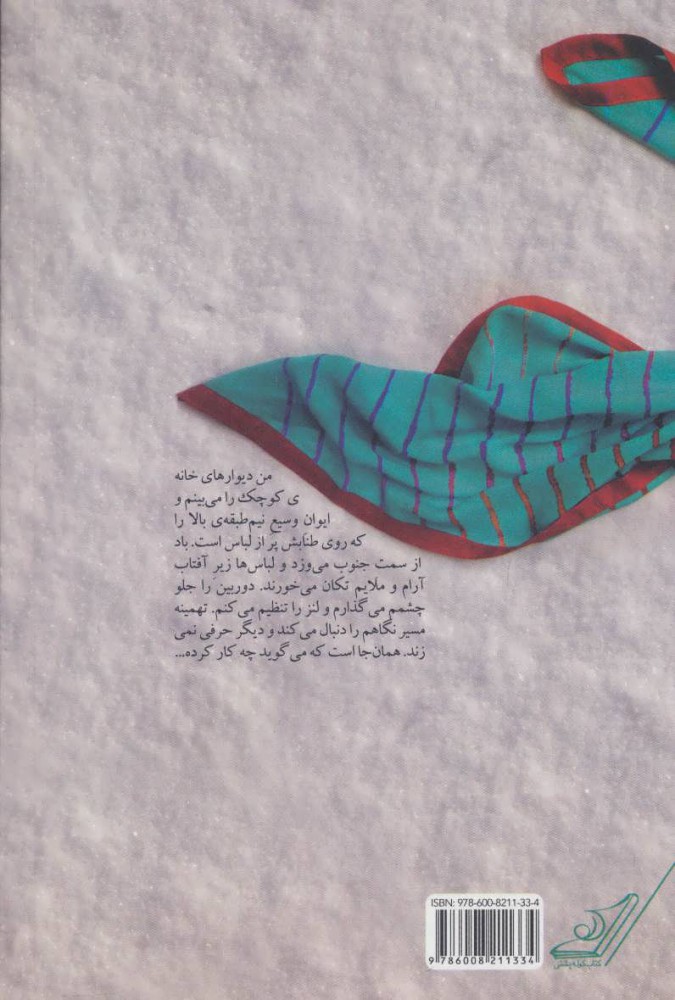 من دیوارهای خانه
ی کوچک را می‌بینم و
ایوان وسیع نیم‌طبقه‌ی بالا را
که روی طنابش پر از لباس است. باد
از سمت جنوب می‌وزد و لباس‌ها زیرِ آفتاب
آرام و ملایم تکان می‌خورند. دوربین را جلو
چشمم می‌گذارم و لنز را تنظیم می‌کنم. تهمینه
مسیر نگاهم را دنبال می‌کند و دیگر حرفی نمی
زند. همان‌جا است که می‌گوید چه کار کرده...
ISBN: 978-600-8211-33-4
9 786008 211334
کتاب کوله‌پشتی